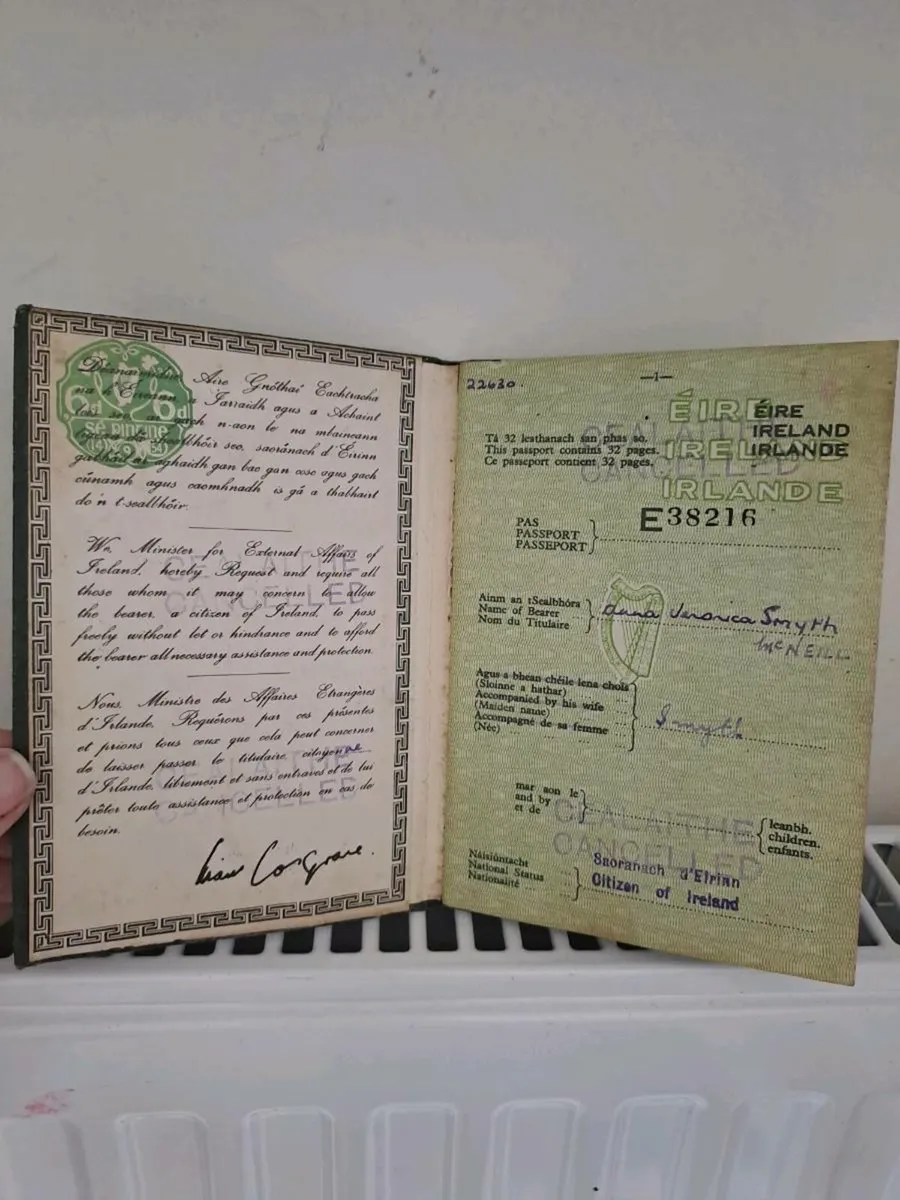 6d 6d
sé pingne
Aire Gnóthaí Eachtracha
na h-Éireann a Iarraidh agus a Achaint
ar gach n-aon le na mbaineann
seo, saoránach d'Éirinn
aghaidh gan bac gan cosc agus gach
cúnamh agus caomhnadh is gá a thabhairt
do'n t-sealbhóir.
We, Minister for External Affairs of
Ireland, hereby Request and require all
those whom it may concern to allow
the bearer, a citizen of Ireland, to pass
freely without let or hindrance and to afford
the bearer all necessary assistance and protection.
CEALAITHE
CANCELLED
Nous, Ministre des Affaires Etrangères
d'Irlande, Requérons par ces présentes
et prions tous ceux que cela peut concerner
de laisser passer le titulaire, citoyenne
d'Irlande, librement et sans entraves et de lui
prêter toute assistance et protection en cas de
besoin.
CEALAITHE
CANCELLED
Liam Cosgrave.
22630.
—1—
ÉIRE
IRELAND
IRLANDE
ÉIRE
IRELAND
IRLANDE
CEALAITHE
CANCELLED
Tá 32 leathanach san phas so.
This passport contains 32 pages.
Ce passeport contient 32 pages.
PAS
PASSPORT
PASSEPORT
E38216
Ainm an tSealbhóra
Name of Bearer
Nom du Titulaire
Anna Veronica Smyth
McNEILL
Agus a bhean chéile lena chois
(Sloinne a hathar)
Accompanied by his wife
(Maiden name)
Accompagné de sa femme
(Née)
Smyth
mar aon le
and by
et de
leanbh.
children.
enfants.
CEALAITHE
CANCELLED
Náisiúntacht
National Status
Nationalité
Saoranach d'Eirinn
Citizen of Ireland